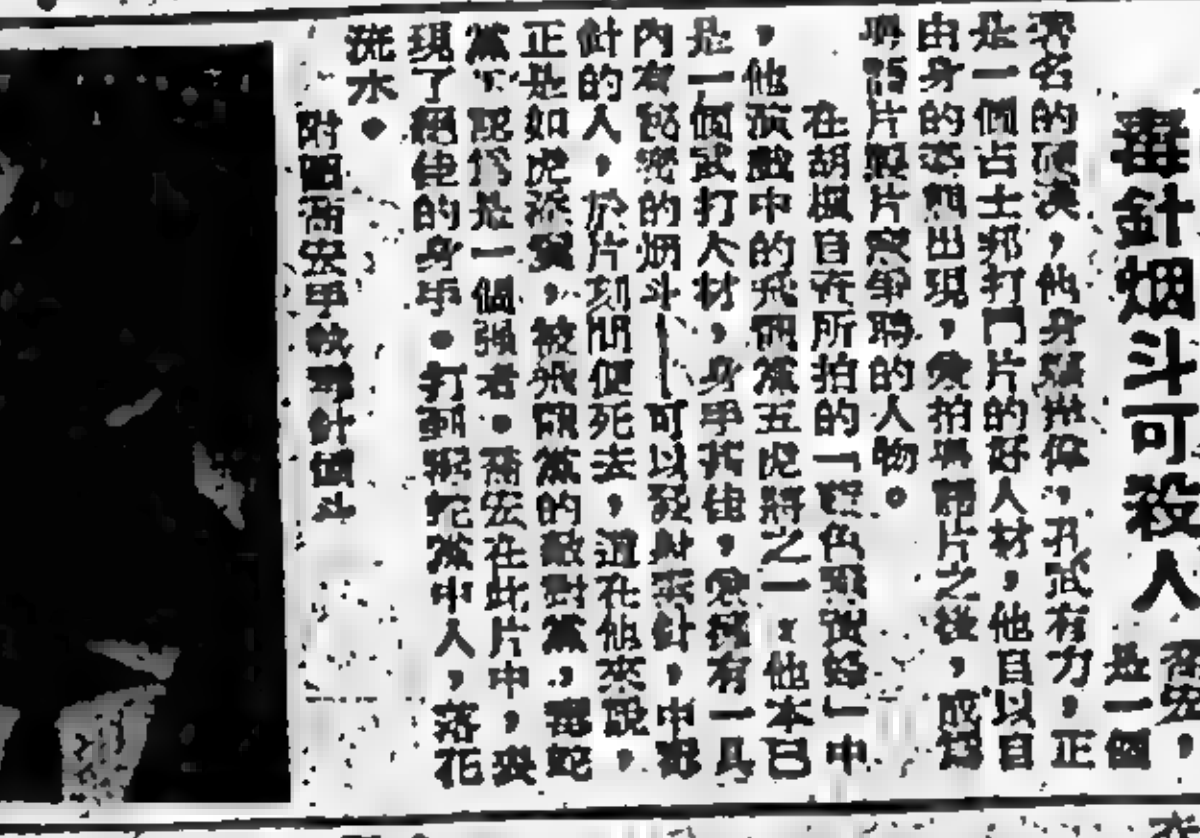 毒針烟斗可殺人
喬宏，
是一個
著名的硬漢，他身强拚偉，孔武有力，正
是一個占士邦打鬥片的好人材，他自以自
由身的姿態出現，爰拍導師片之後，成爲
國語片製片家爭聘的人物。
在胡楓自在所拍的「彩色黃蜂」中
，他演戲中的飛鵰黨五虎將之一：他本已
是一個武打人材，身手其佳，爰擁有一具
內有秘密的烟斗──可以發射毒針，中毒
針的人，於片刻間便死去，這在他來說，
正是如虎添翼，被飛鵰黨的敵對黨，毒蛇
黨下認爲是一個强者。喬宏在此片中，表
現了絕佳的身手。打到毒蛇黨中人，落花
流水。
附圖喬宏手執毒針烟斗